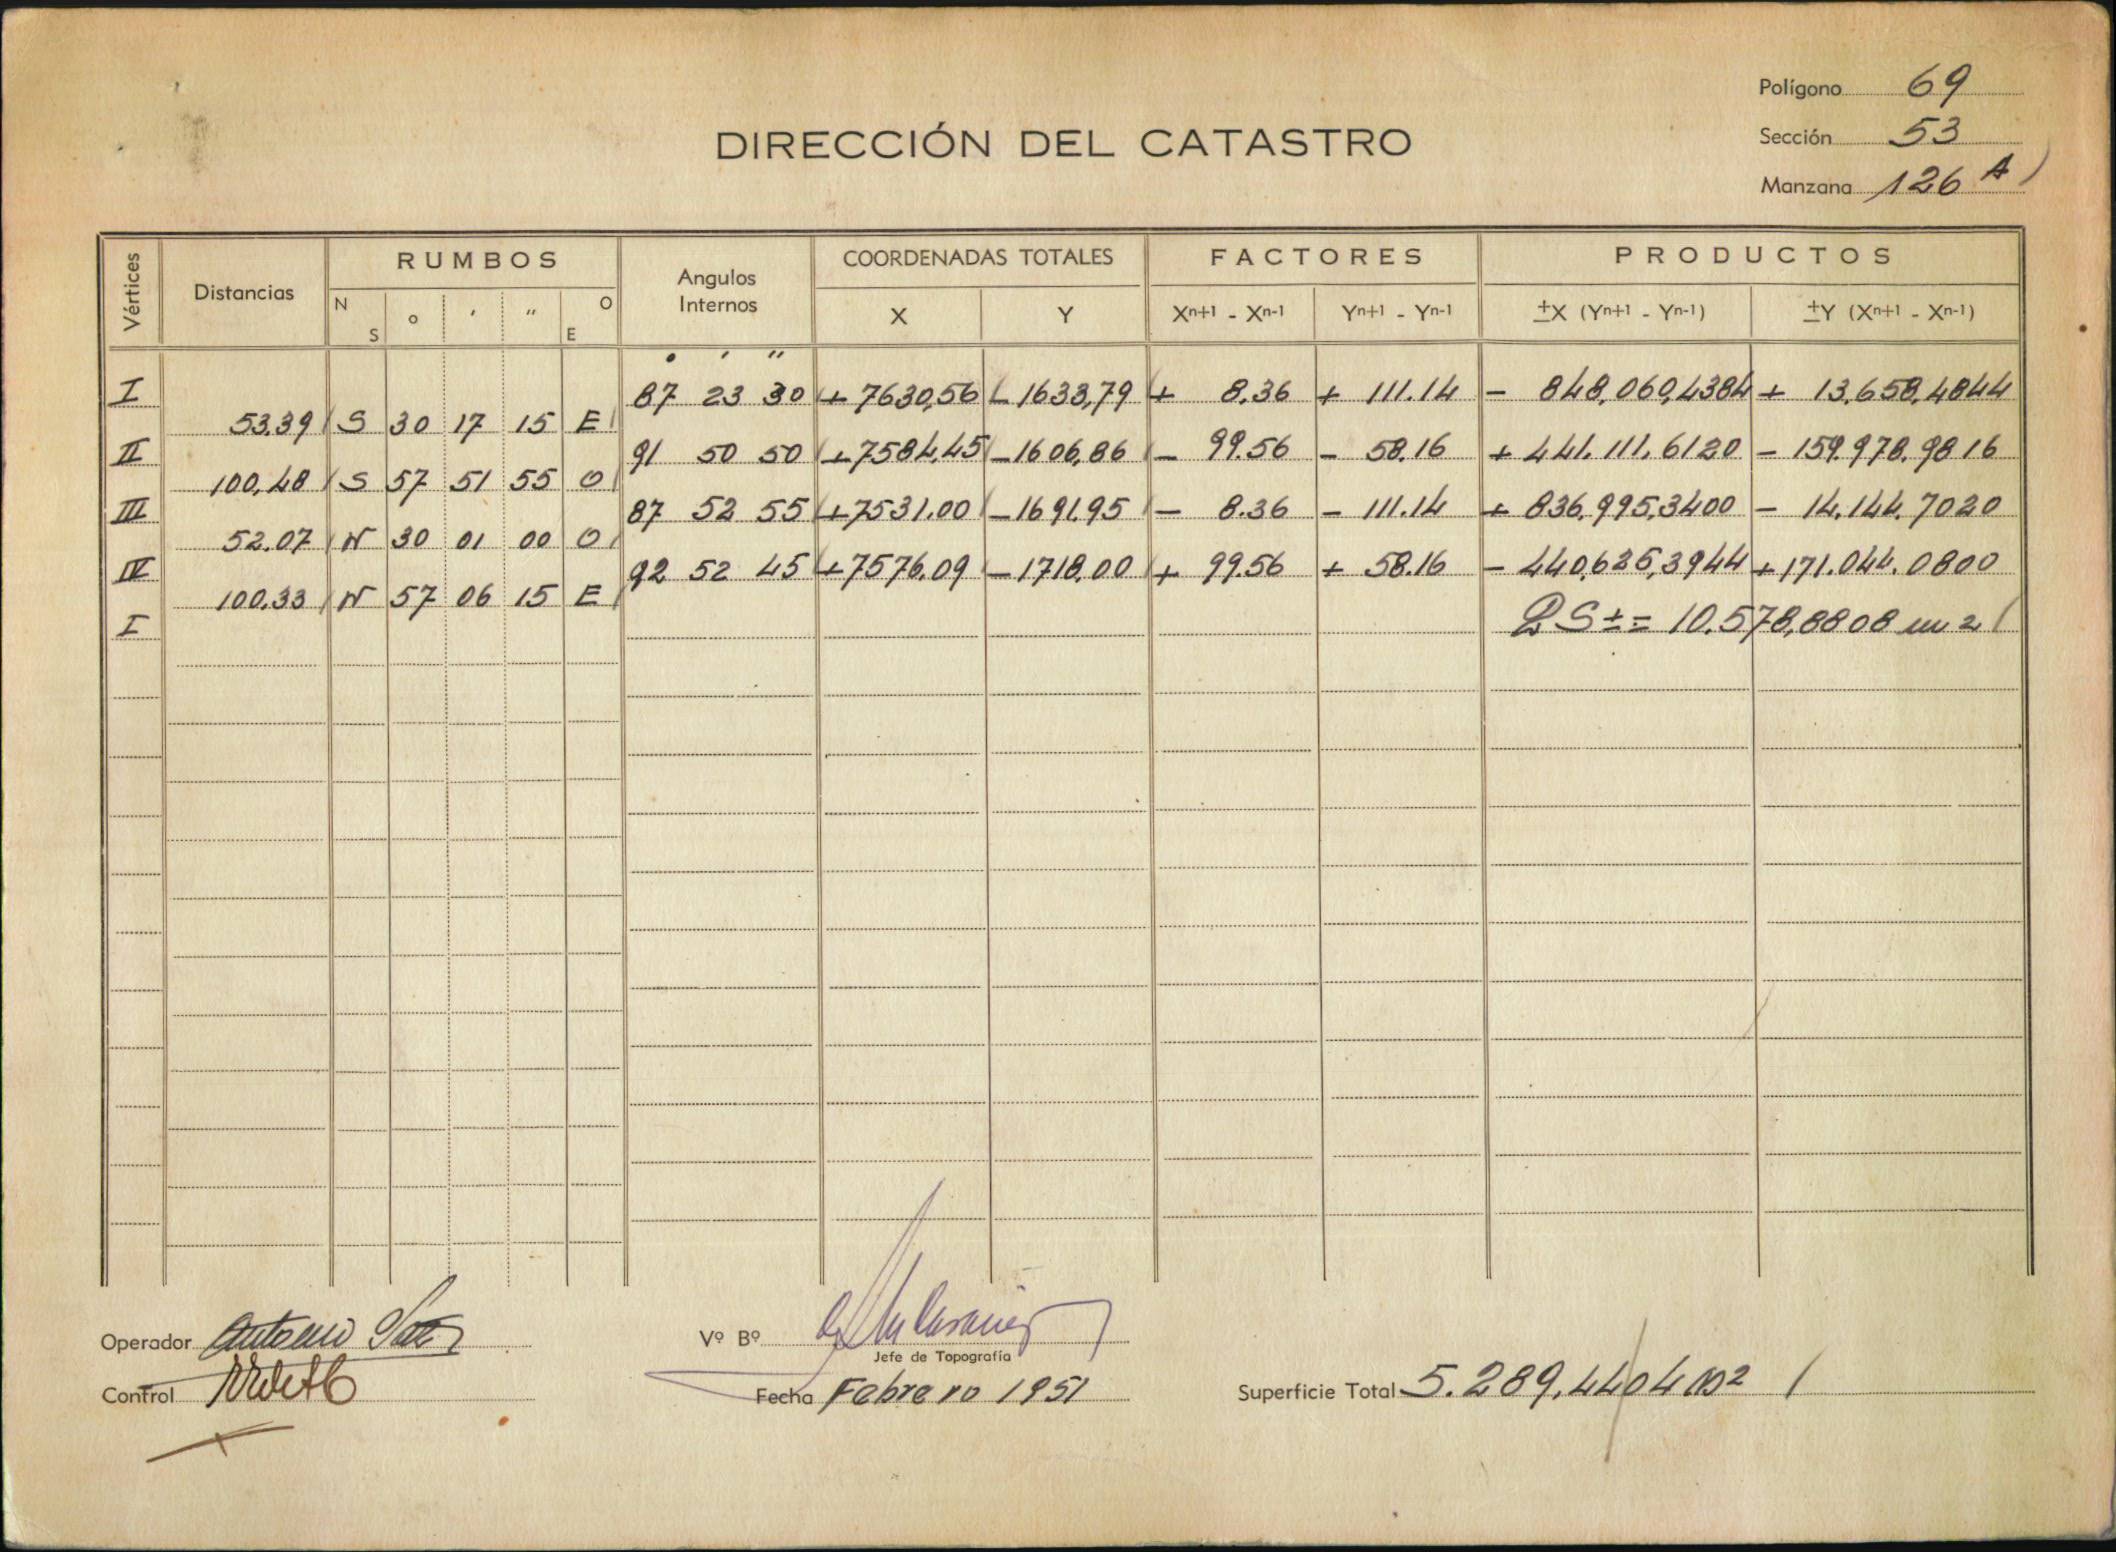 Polígono 69
DIRECCIÓN DEL CATASTRO
Sección 53
Manzana 126 A
Vértices Distancias RUMBOS Angulos Internos COORDENADAS TOTALES FACTORES PRODUCTOS
N S ° ' " O E X Y Xn+1 - Xn-1 Yn+1 - Yn-1 ±X (Yn+1 - Yn-1) ±Y (Xn+1 - Xn-1)
° ' "
I 87 23 30 + 7630,56 - 1633,79 + 8.36 + 111.14 - 848,060,4384 + 13.658,4844
53.39 S 30 17 15 E
II 91 50 50 + 7584,45 - 1606,86 - 99.56 - 58.16 + 441.111.6120 - 159.978.9816
100,48 S 57 51 55 O
III 87 52 55 + 7531.00 - 1691.95 - 8.36 - 111.14 + 836.995,3400 - 14.144.7020
52.07 N 30 01 00 O
IV 92 52 45 + 7576.09 - 1718.00 + 99.56 + 58.16 - 440,625,3944 + 171.044.0800
100.33 N 57 06 15 E
I 2 S ± = 10.578,8808 m 2
Operador Antonio
Vº Bº
Jefe de Topografía
Control
Fecha Febrero 1951
Superficie Total 5.289,4404 m2